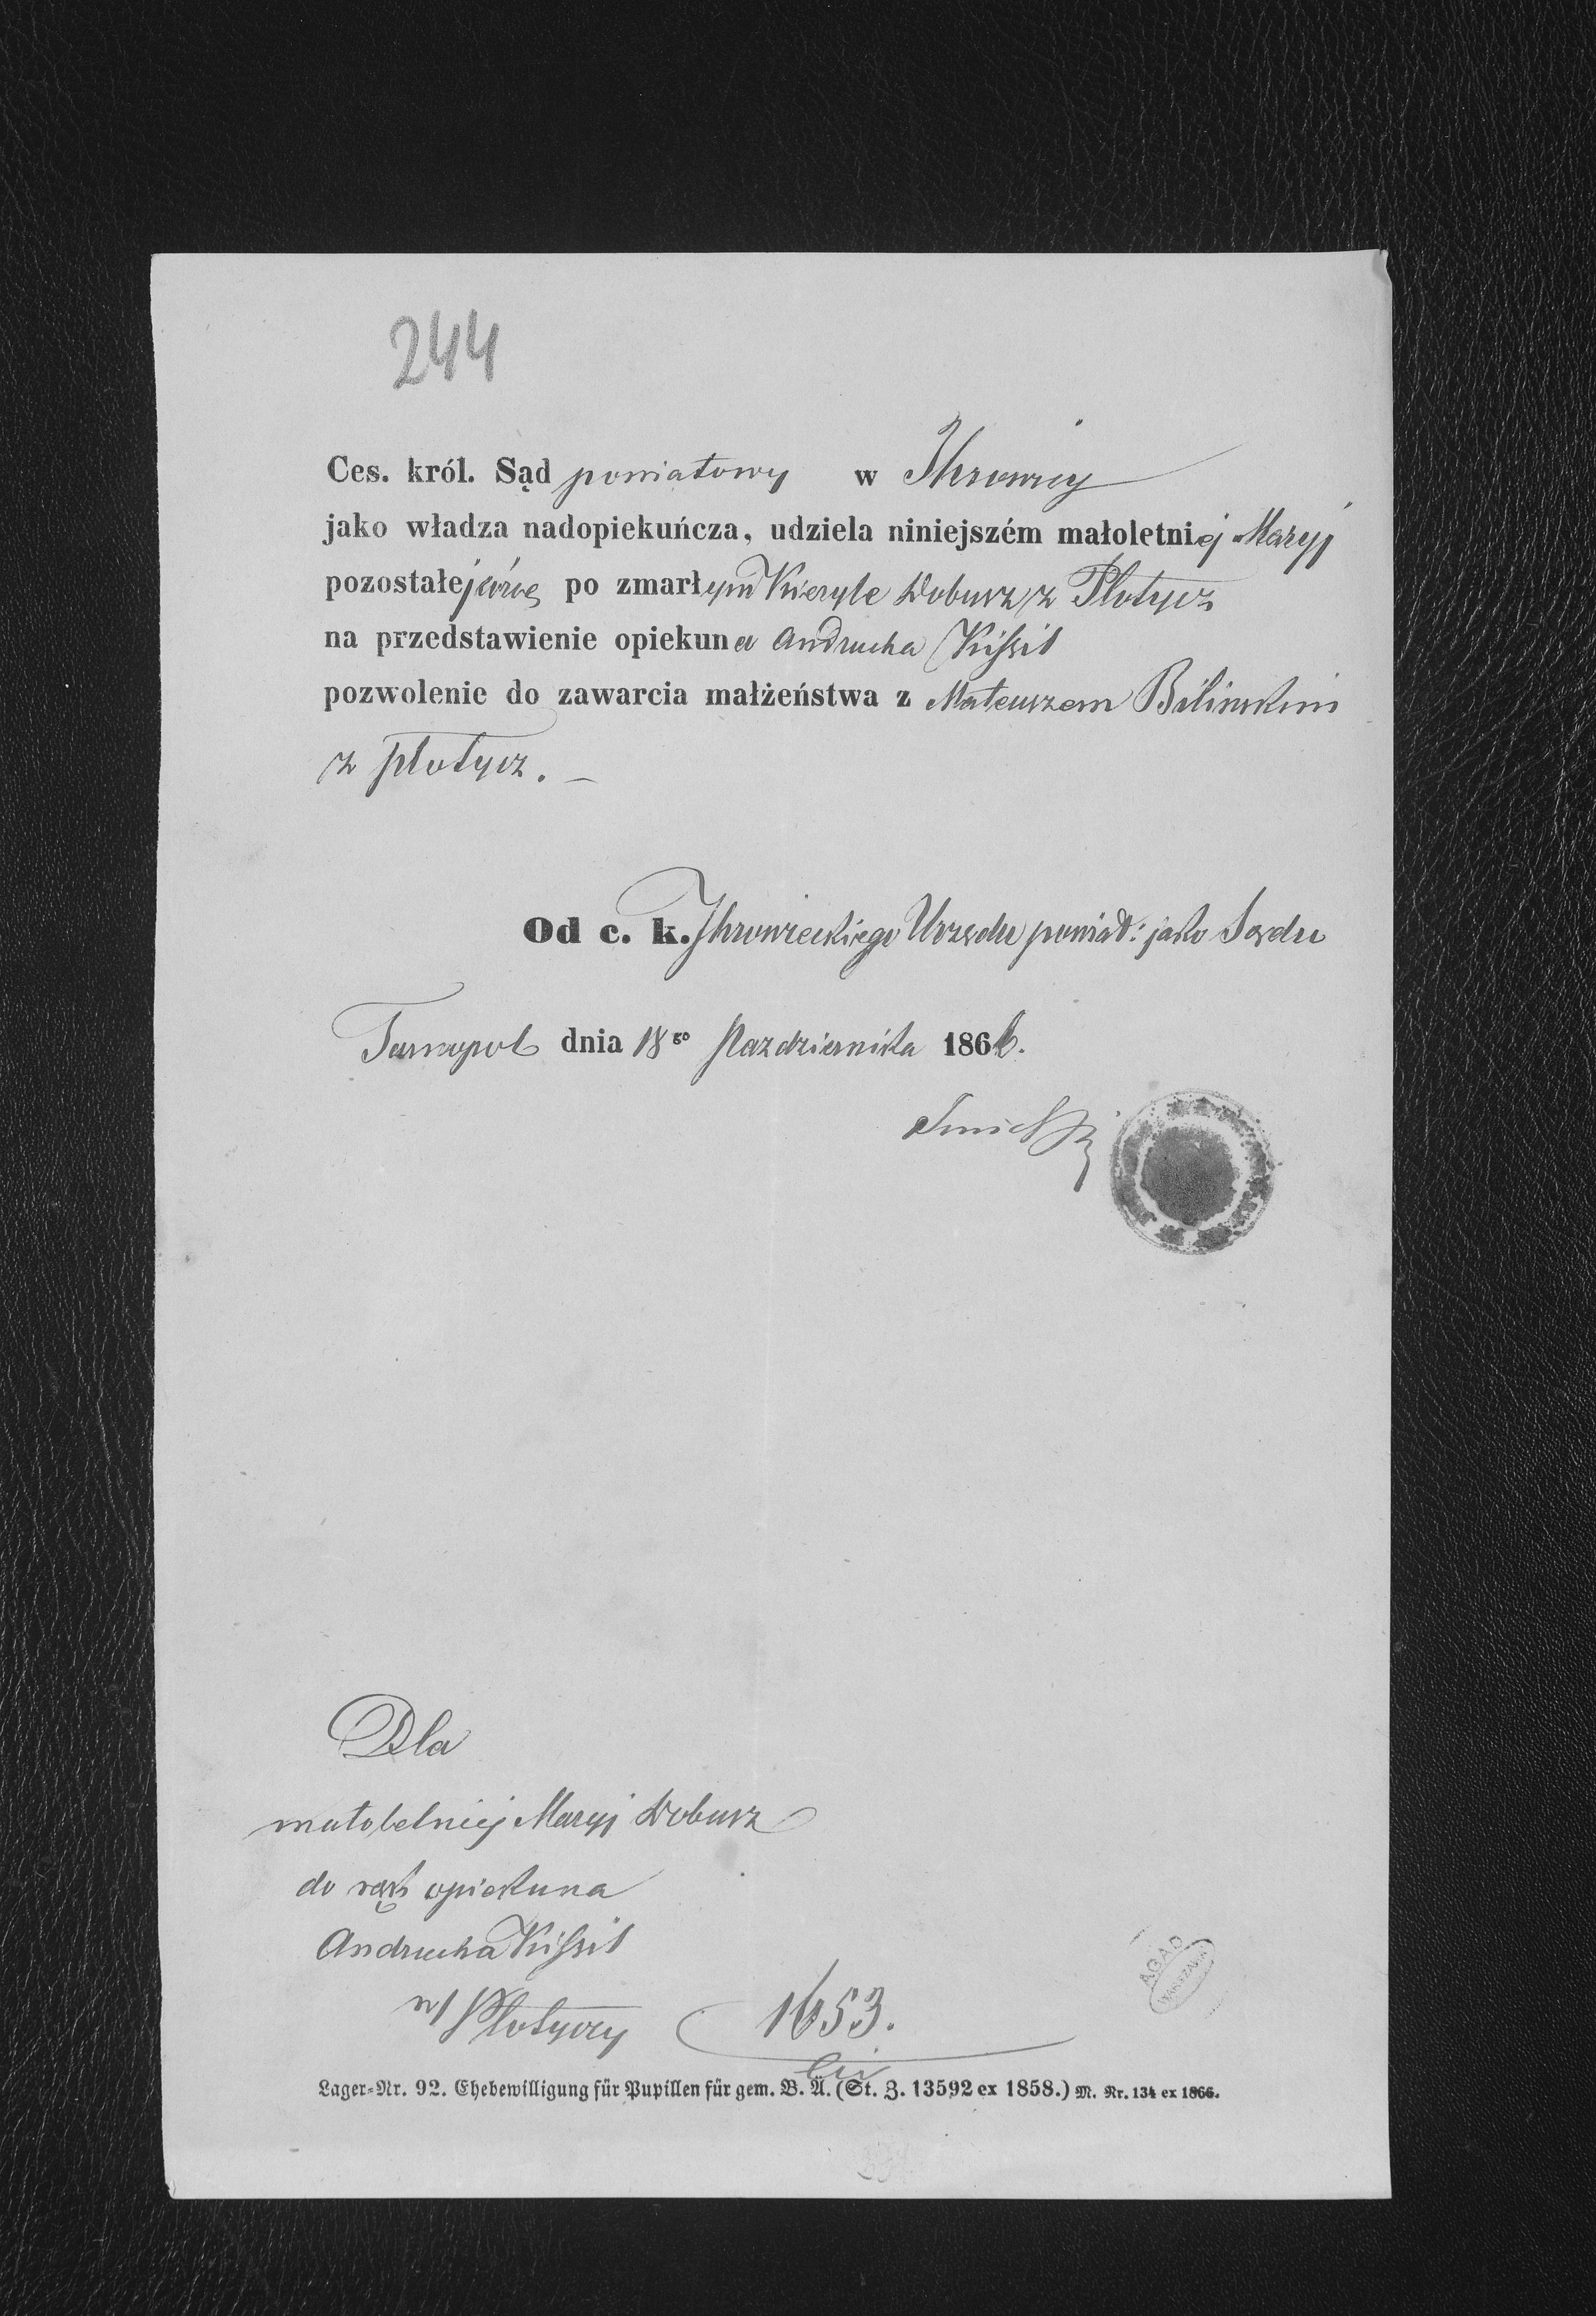 244
Ces. król. Sąd powiatowy w Ihrowicy
jako władza nadopiekuńcza, udziela niniejszém małoletniej Maryj
pozostałej po zmarłym Kieryle Dobusz z Płotycz
na przedstawienie opiekuna Andrucha Kissil
pozwolenie do zawarcia małżeństwa z Mateuszem Bilinskim
z Płotycz. —
Od c. k. Ihrowieckiego Urzędu powiat: jako Sądu
Tarnopol dnia 18go Pazdziernika 1866.
Dla
małoletniej Maryj Dobusz
do rąk opiekuna
Andrucha Kissil
w Płotyczy
1653.
AGAD
WARSZAWA
Lager-Nr. 92. Ehebewilligung für Pupillen für gem. B. Ä. (St. Z. 13592 ex 1858.) M. Nr. 134 ex 1866.